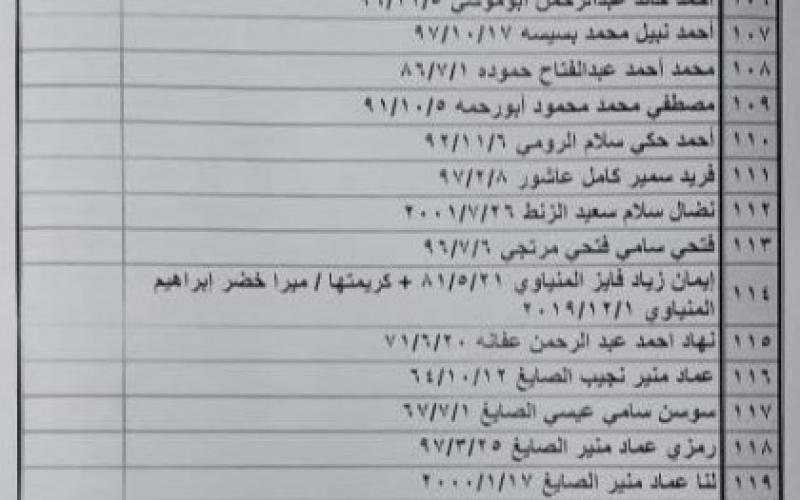 ١٠٦ أحمد خالد عبدالرحمن أبوموسي
١٠٧ أحمد نبيل محمد بسيسه ٩٧/١٠/١٧
١٠٨ محمد أحمد عبدالفتاح حموده ٨٦/٧/١
١٠٩ مصطفي محمد محمود أبورحمه ٩١/١٠/٥
١١٠ أحمد حكي سلام الرومي ٩٢/١١/٦
١١١ فريد سمير كامل عاشور ٩٧/٢/٨
١١٢ نضال سلام سعيد الزنط ٢٠٠١/٧/٢٦
١١٣ فتحي سامي فتحي مرتجي ٩٦/٧/٦
١١٤ إيمان زياد فايز المنياوي ٨١/٥/٢١ + كريمتها / ميرا خضر إبراهيم
المنياوي ٢٠١٩/١٢/١
١١٥ نهاد احمد عبد الرحمن عفانه ٧١/٦/٢٠
١١٦ عماد منير نجيب الصايغ ٦٤/١٠/١٢
١١٧ سوسن سامي عيسي الصايغ ٦٧/٧/١
١١٨ رمزي عماد منير الصايغ ٩٧/٣/٢٥
١١٩ لنا عماد منير الصايغ ٢٠٠٠/١/١٧